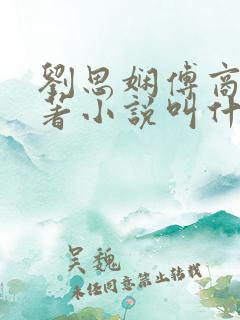 劉思嫻傅商
著小說叫什
吴魏
未经同意禁止转载